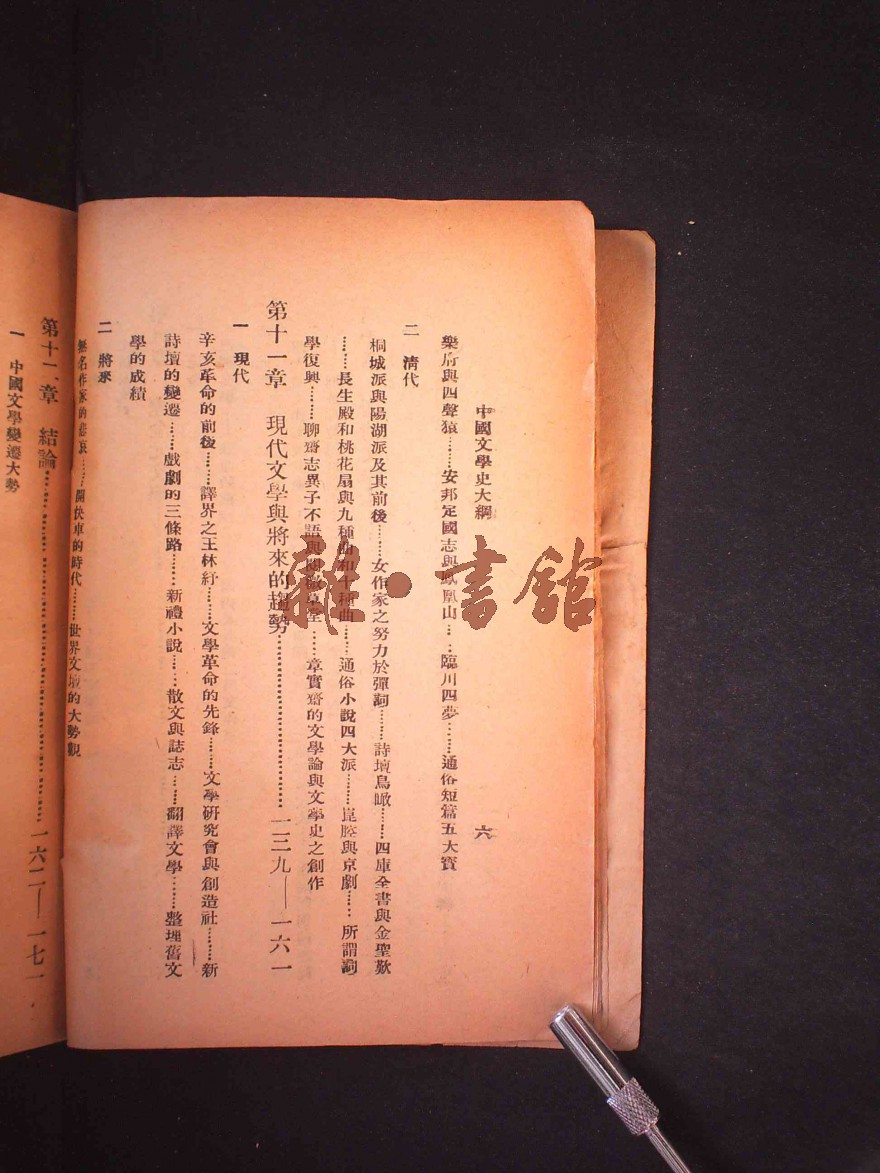 中國文學史大綱
六
樂府與四聲猿……安邦定國志與鳳凰山……臨川四夢……通俗短篇五大寶
二 清代
桐城派與陽湖派及其前後……女作家之努力於彈詞……詩壇鳥瞰……四庫全書與金聖歎
……長生殿和桃花扇與九種曲和十種曲……通俗小說四大派……崑腔與京劇……所謂詞
學復興……聊齋志異子不語與閱微草堂……章實齋的文學論與文學史之創作
第十一章 現代文學與將來的趨勢……一三九—一六一
一 現代
辛亥革命的前後……譯界之王林紓……文學革命的先鋒……文學硏究會與創造社……新
詩壇的變遷……戲劇的三條路……新禮小說……散文與誌志……翻譯文學……整理舊文
學的成績
二 將來
無名作家的悲哀……開快車的時代……世界文壇的大勢觀
第十二章 結論……一六二—一七一
一 中國文學變遷大勢
雜·書館